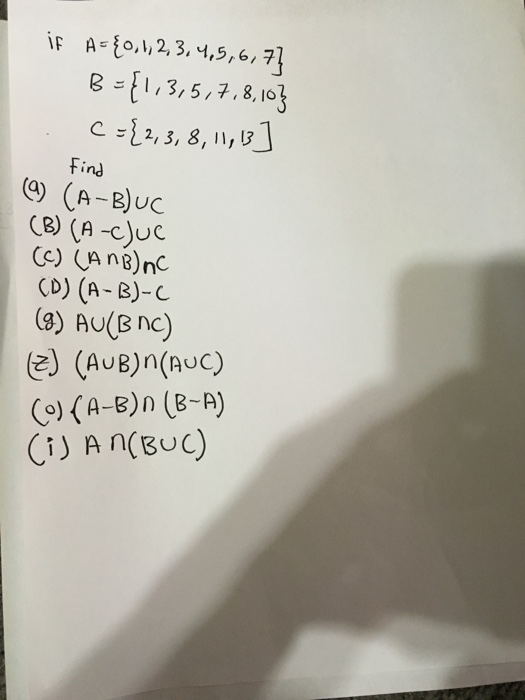 if A={0,1,2,3,4,5,6,7}
B={1,3,5,7,8,10}
C={2,3,8,11,13]
Find
(a) (A-B)∪C
(B) (A-C)∪C
(C) (A∩B)∩C
(D) (A-B)-C
(g) A∪(B∩C)
(z) (A∪B)∩(A∪C)
(o) {A-B)∩(B-A)
(i) A∩(B∪C)